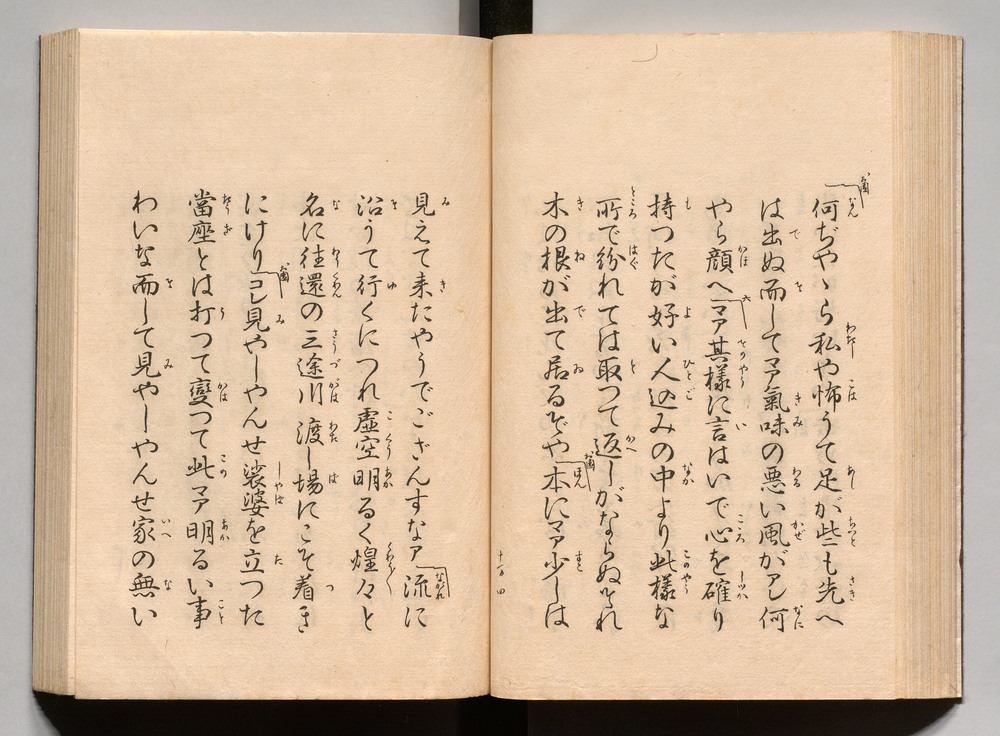 何ぢやゝら私や怖うて足が些も先へ
は出ぬ而してマア氣味の悪い風がアレ何
やら顔へマア其様に言はいで心を確り
持つたが好い人込みの中より此様な
所で紛れては取つて返しがならぬそれ
木の根が出て居るぞや本にマア少しは
見えて来たやうでござんすなア流に
沿うて行くにつれ虚空明るく煌々と
名に往還の三途川渡し場にこそ着き
にけりコレ見やしやんせ裟婆を立つた
當座とは打つて變つて此マア明るい事
わいな而して見やしやんせ家の無い